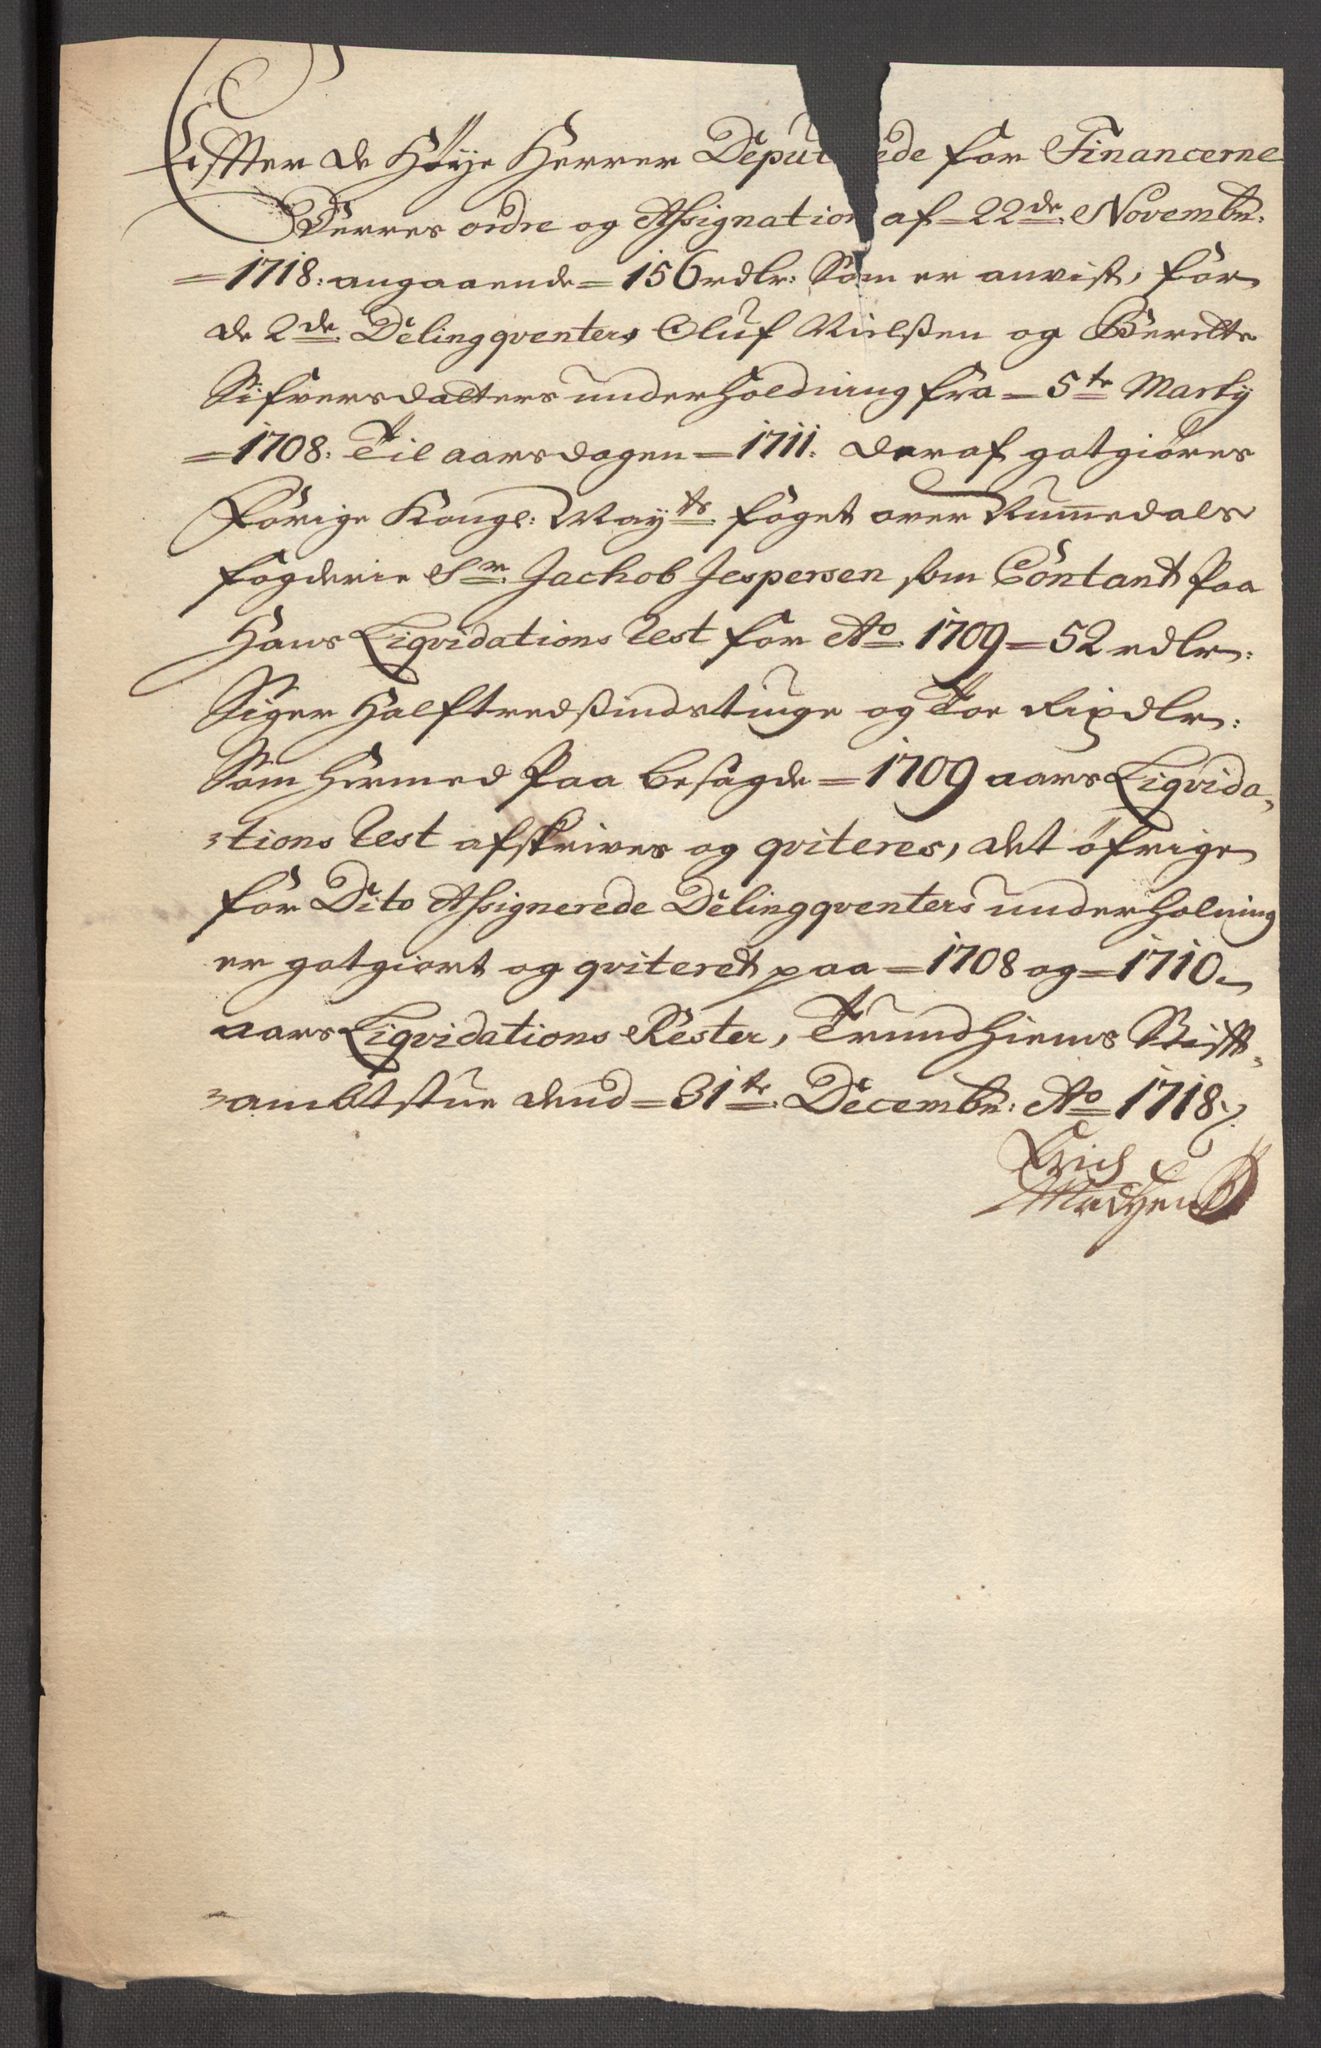 Effter de Høye Herrer Deput ede for Financerne
Derres ordre og Assignation af 22de Novembr:
1718: angaaende 156 rdlr: Som er anvist, for
de 2de Delingqventers Oluf Nielßen og Berette
Sifversdatters underholdning fra 5te Marty
1708: Til aarsdagen 1711. deraf gotgiøres
forige Kongl: Mayts foget over Nummedals
fogderie Sr. Jachob Jespersen som Contant Paa
Hans Liqvidations Rest for Ao 1709 52 rdlr:
Siger Halftredßindstiuge og Toe Rixdlr:
Som hermed Paa besagde 1709 aars Liqvida-
tions Rest afskrives og qviteres, det öfrige
for Dito Assignerede Delingqventers underholning
er gotgiort og qviteret paa 1708 og 1710
aars Liqvidations Rester, Trundhiems Stifft-
ambtstue dend 31te Decembr: Ao 1718
Erich
Madsen